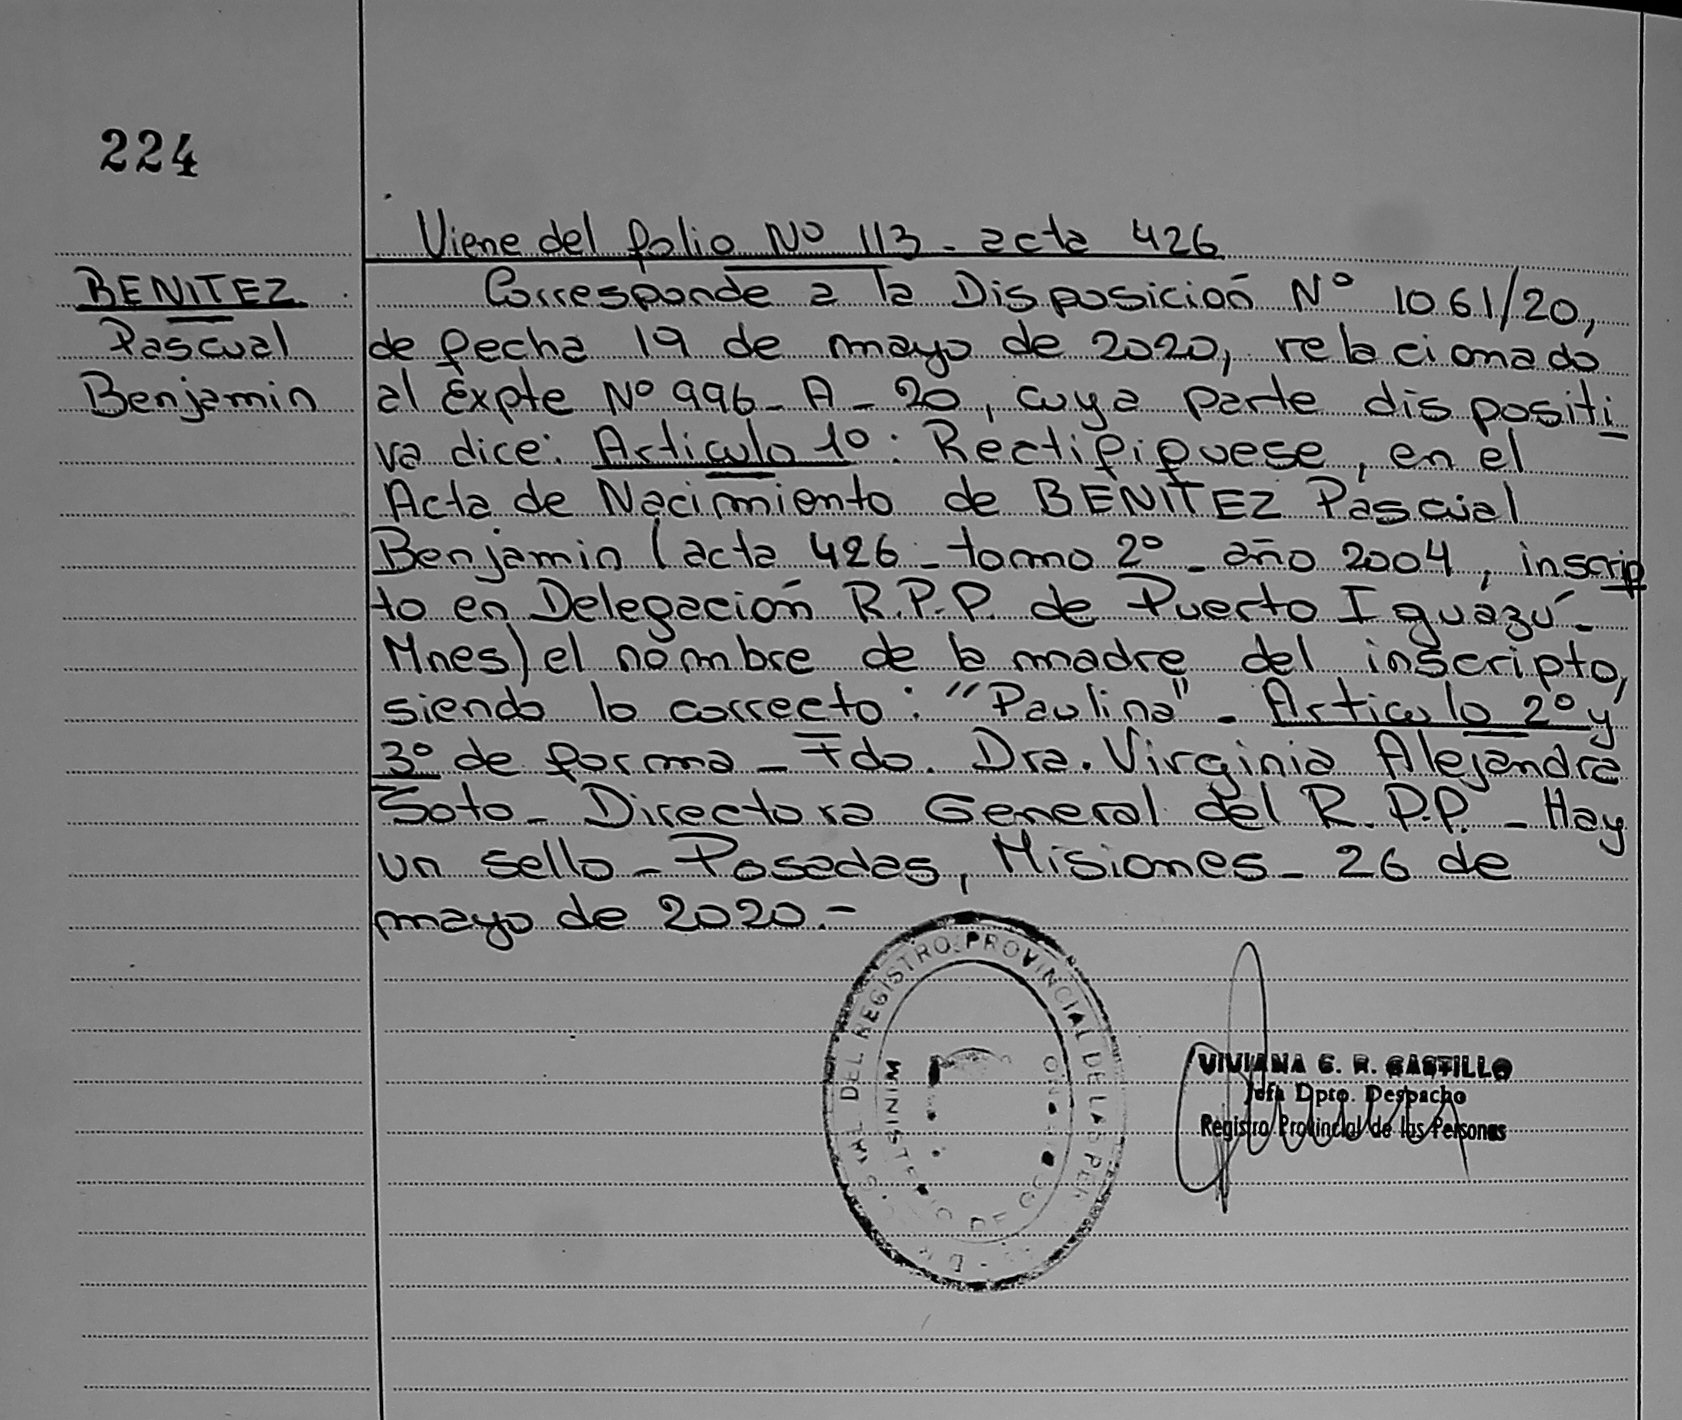 224
Viene del folio Nº 113 - acta 426
BENITEZ
Pascual
Benjamin
Corresponde a la Disposición Nº 1061/20,
de fecha 19 de mayo de 2020, relacionado
al Expte Nº 996 - A - 20, cuya parte dispositi
va dice: Articulo 1º: Rectifiquese, en el
Acta de Nacimiento de BENITEZ Pascual
Benjamin (acta 426 - tomo 2º - año 2004, inscrip
to en Delegación R.P.P. de Puerto Iguazú -
Mnes) el nombre de la madre del inscripto,
siendo lo correcto: "Paulina" - Articulo 2º y
3º de forma - Fdo. Dra. Virginia Alejandra
Soto - Directora General del R.P.P. - Hay
un sello - Posadas, Misiones - 26 de
mayo de 2020.-
DEL REGISTRO PROVINCIAL DE LAS
MINISTERIO DE
VIVIANA G. R. CASTILLO
Jefa Dpto. Despacho
Registro Provincial de las Personas